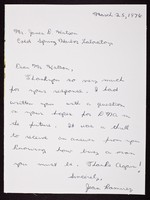 March 23, 1976
Mr. James D. Watson
Cold Spring Harbor Laboratory
Dear Mr. Watson,
Thank you so very much
for your response. I had
written you with a question
on your hopes for DNA in
the future. It was a thrill
to receive an answer from you
knowing how busy a man
you must be. Thanks Again!
Sincerely,